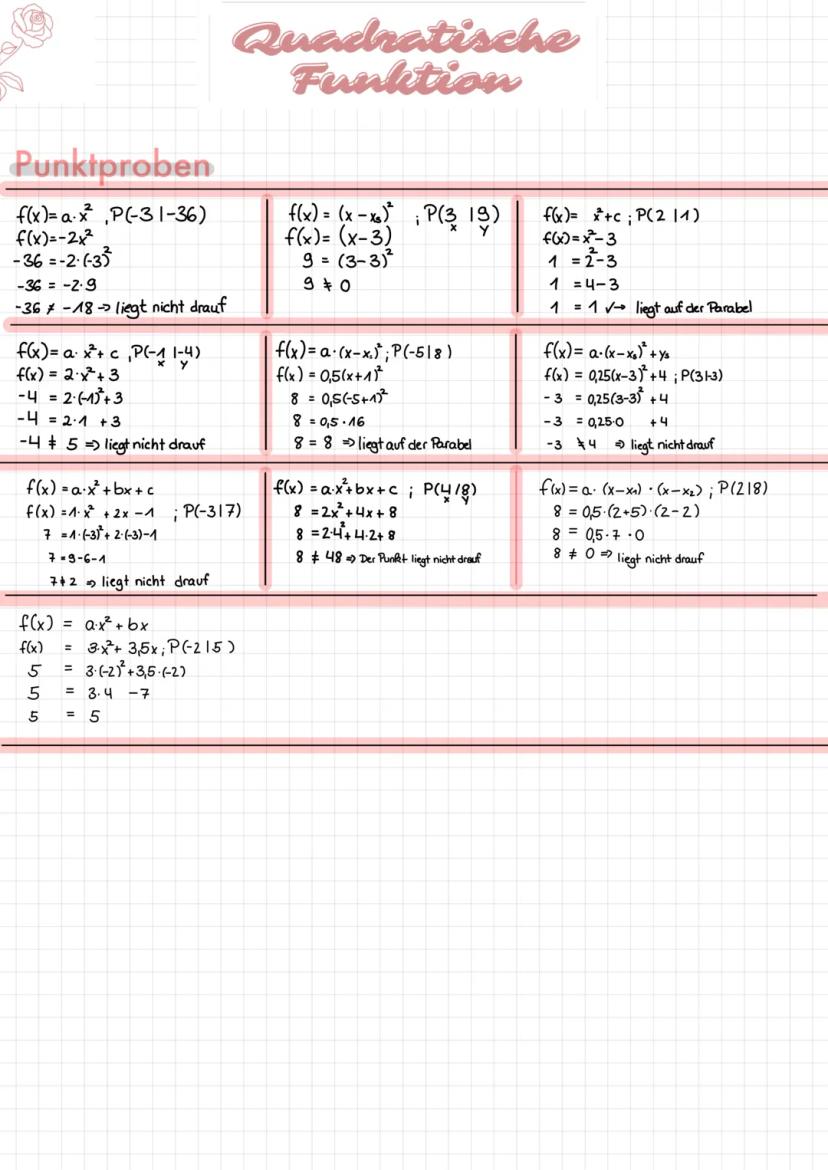 Quadratische
Funktion
Punktproben
f(x)=a·x² , P(-3 | -36)
f(x)=-2x²
-36 = -2·(-3)²
-36 = -2·9
-36 ≠ -18 → liegt nicht drauf
f(x) = (x - xₛ)² ; P(3 | 9)
x y
f(x) = (x-3)
9 = (3-3)²
9 ≠ 0
f(x) = x²+c ; P(2 | 1)
f(x)=x²-3
1 = 2²-3
1 = 4-3
1 = 1 ✓→ liegt auf der Parabel
f(x) = a· x²+ c , P(-1 | -4)
x y
f(x) = 2·x²+3
-4 = 2·(-1)²+3
-4 = 2·1 +3
-4 ≠ 5 ⇒ liegt nicht drauf
f(x) = a·(x-xₛ)² ; P(-5|8)
f(x) = 0,5(x+1)²
8 = 0,5(-5+1)²
8 = 0,5·16
8 = 8 ⇒ liegt auf der Parabel
f(x) = a·(x-xₛ)²+yₛ
f(x) = 0,25(x-3)²+4 ; P(3|-3)
-3 = 0,25(3-3)²+4
-3 = 0,25·0 +4
-3 ≠ 4 ⇒ liegt nicht drauf
f(x) = a·x²+bx+c
f(x) = 1·x² +2x -1 ; P(-3|7)
7 = 1·(-3)²+2·(-3)-1
7 = 9-6-1
7 ≠ 2 ⇒ liegt nicht drauf
f(x) = a·x²+bx+c ; P(4/8)
x y
8 = 2x²+4x+8
8 = 2·4²+4·2+8
8 ≠ 48 ⇒ Der Punkt liegt nicht drauf
f(x) = a· (x-x₁) · (x-x₂) ; P(2|8)
8 = 0,5·(2+5)·(2-2)
8 = 0,5·7 ·0
8 ≠ 0 ⇒ liegt nicht drauf
f(x) = a·x²+bx
f(x) = 3·x²+ 3,5x ; P(-2|5)
5 = 3·(-2)²+3,5·(-2)
5 = 3·4 -7
5 = 5